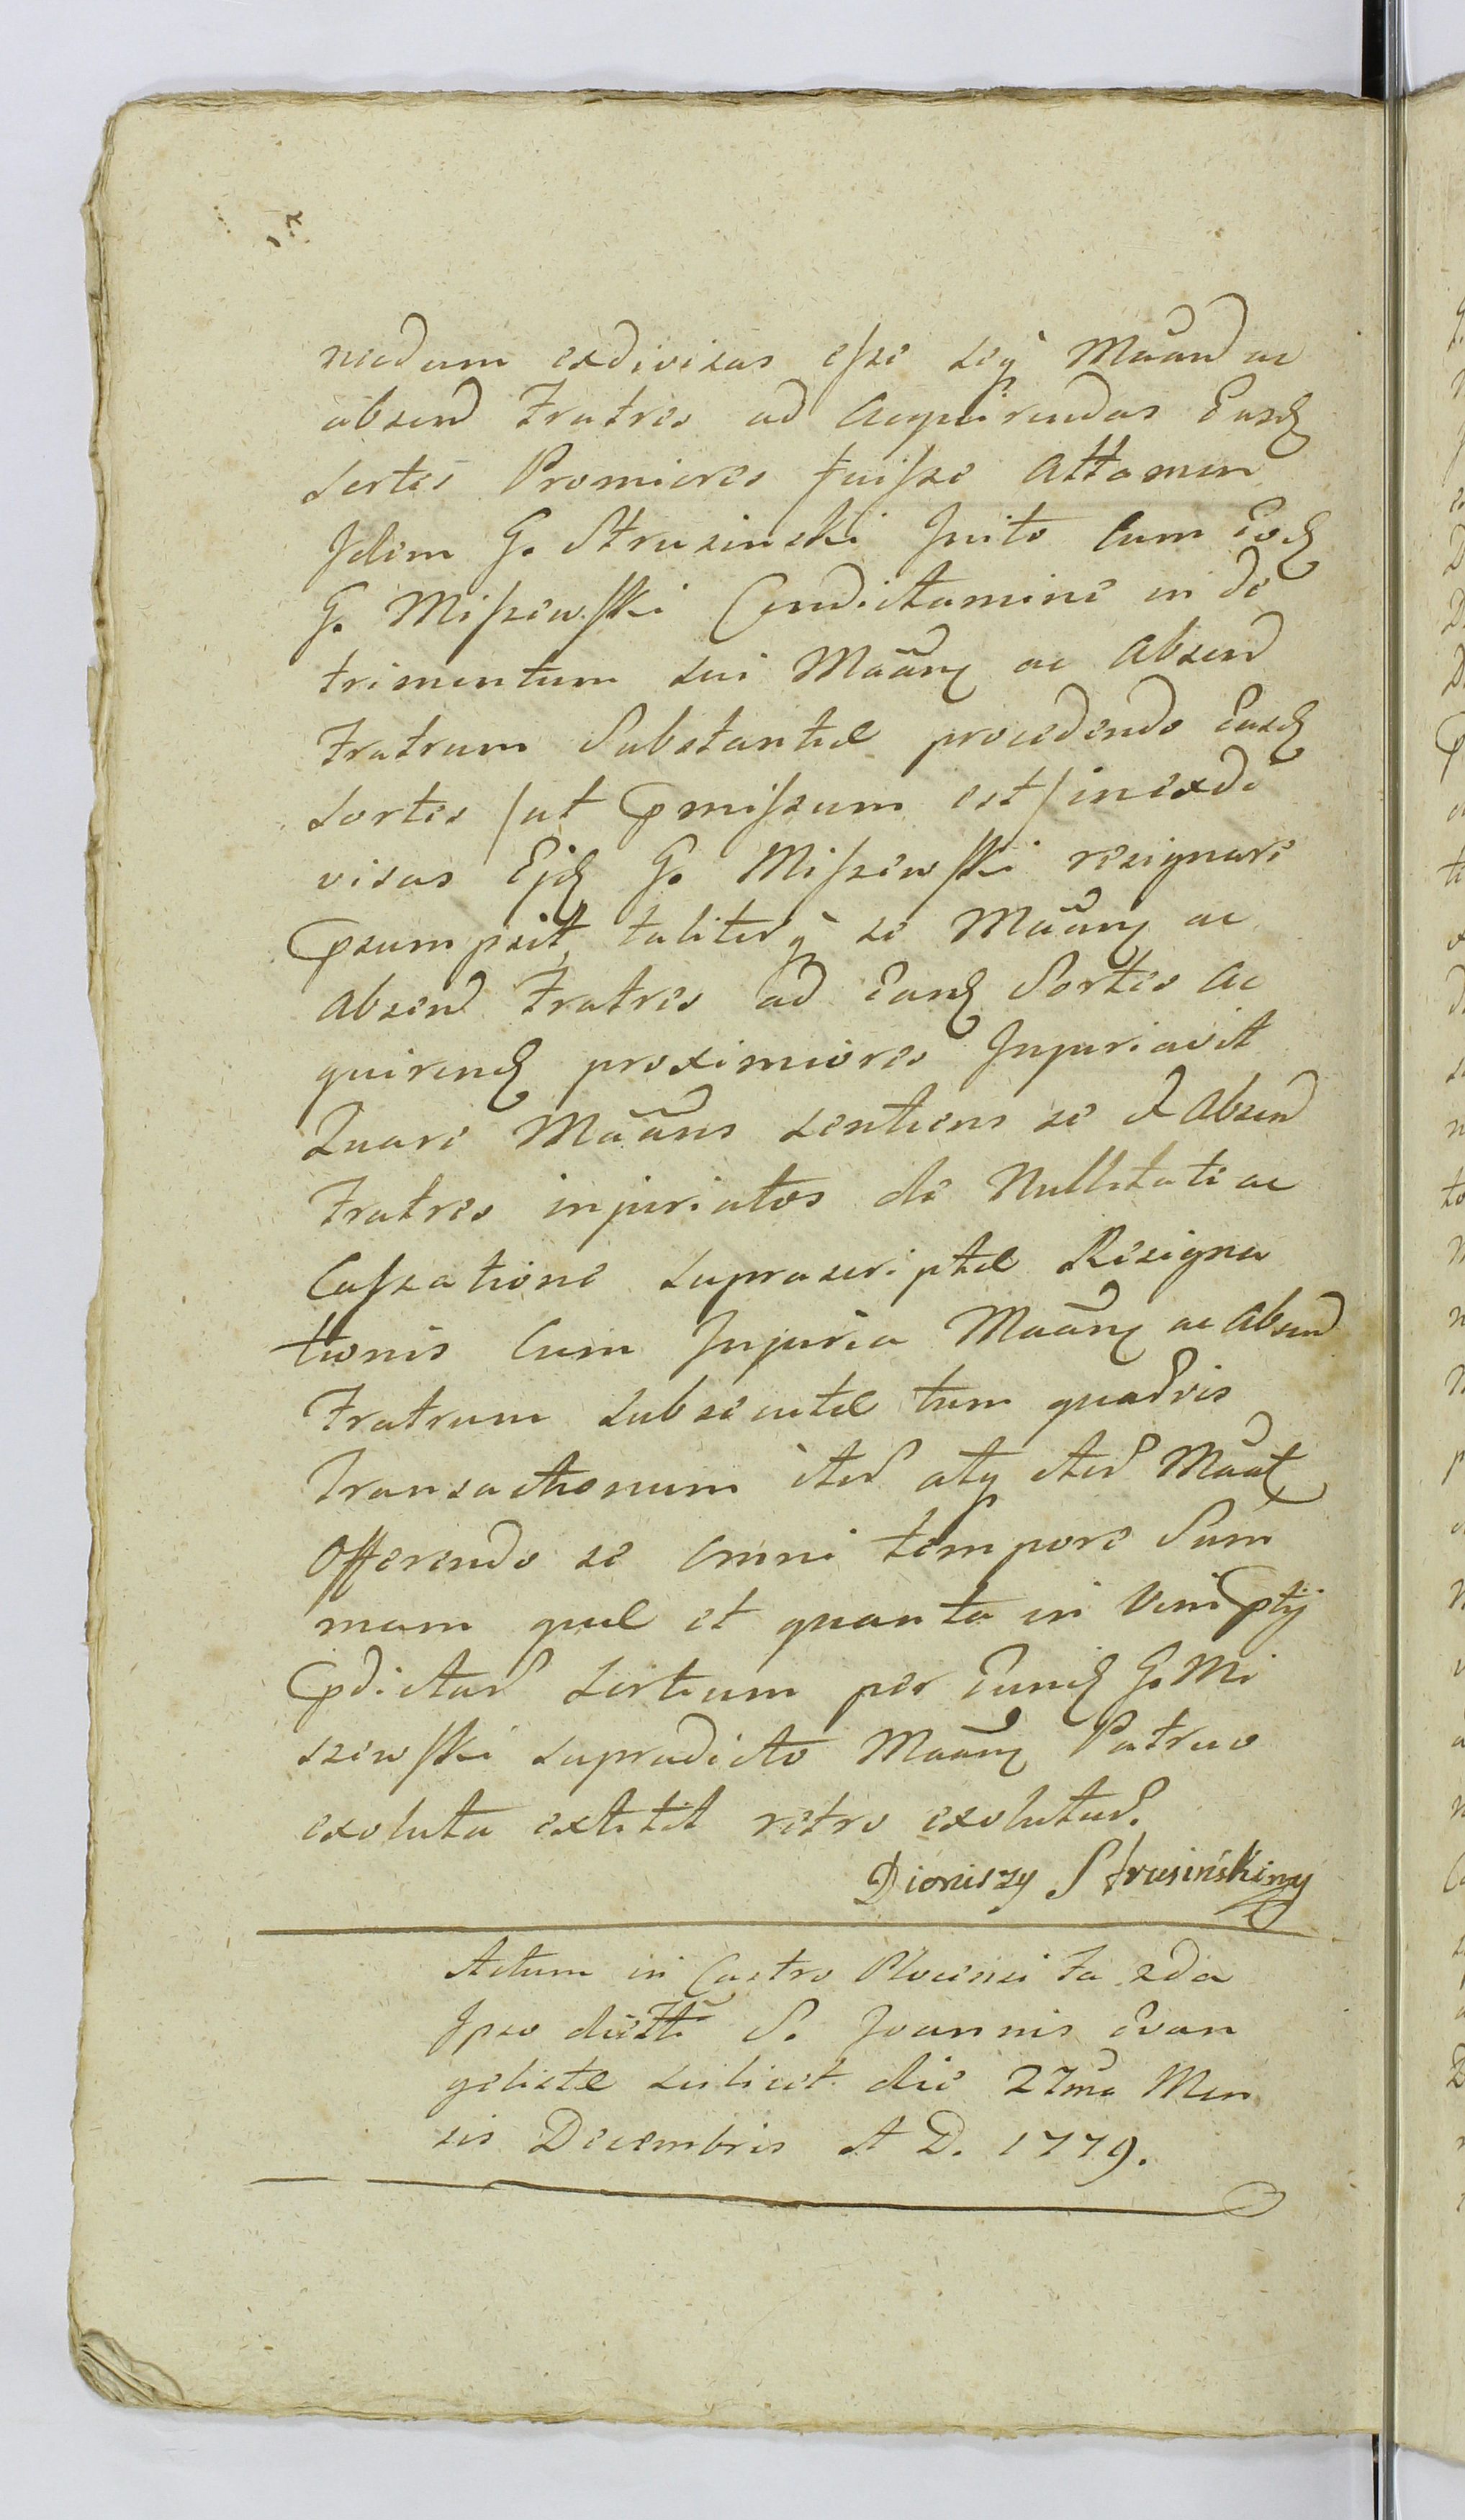 necdum exdivisas esse seq Maand ac
absend Fratres ad acquirendas Easd
Sortes Promiores fuisse Attamen
Idem G. Strusinski Inito Cum Eod
G. Miszewski Condictamine in de
trimentum sui Maan ac Absend
Fratrum Substantiæ procedendo Easd
Sortes /ut Pmissum est/ inexdi
visas Ejd G. Miszewski resignare
Psumpsit, taliterq se Maan ac
Absend Fratres ad Eand Sortes Ac
quirend proximiores Injuriavit
Quare Maans sentiens se & Absend
Fratres injuriatos de Nullitate ac
Cassatione suprascriptæ Resigna
tionis Cum Injuria Maan ac Absend
Fratrum subsecutæ tum quarvis
Transactionum iter atq iter Maat
Offerendo se omni tempore Sum
mam quæ et quanta in vim Ptij
Pdictar Sortium per Eund G. Mi
szewski supradicto Maan Patruo
exoluta extitit retro exolutur.
Dioniszy Strusiński mp
Actum in Castro Plocensi Fa 2da
Ipso die Fti S. Joannis Evan
gelistæ scilicet die 27ma Men
sis Decembris A D. 1779.